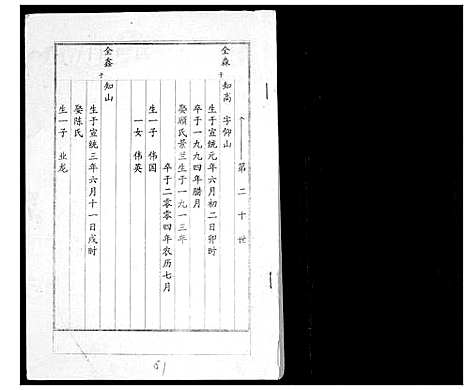 第二十世
全森子 知高 字仰山
生于宣统元年六月初二日卯时
卒于一九九四年腊月
娶顾氏景兰生于一九一三年
卒于二零零四年农历七月
生一子 伟国
一女 伟英
全鑫子 知山
生于宣统三年六月十一日戌时
娶陈氏
生一子 业龙
51